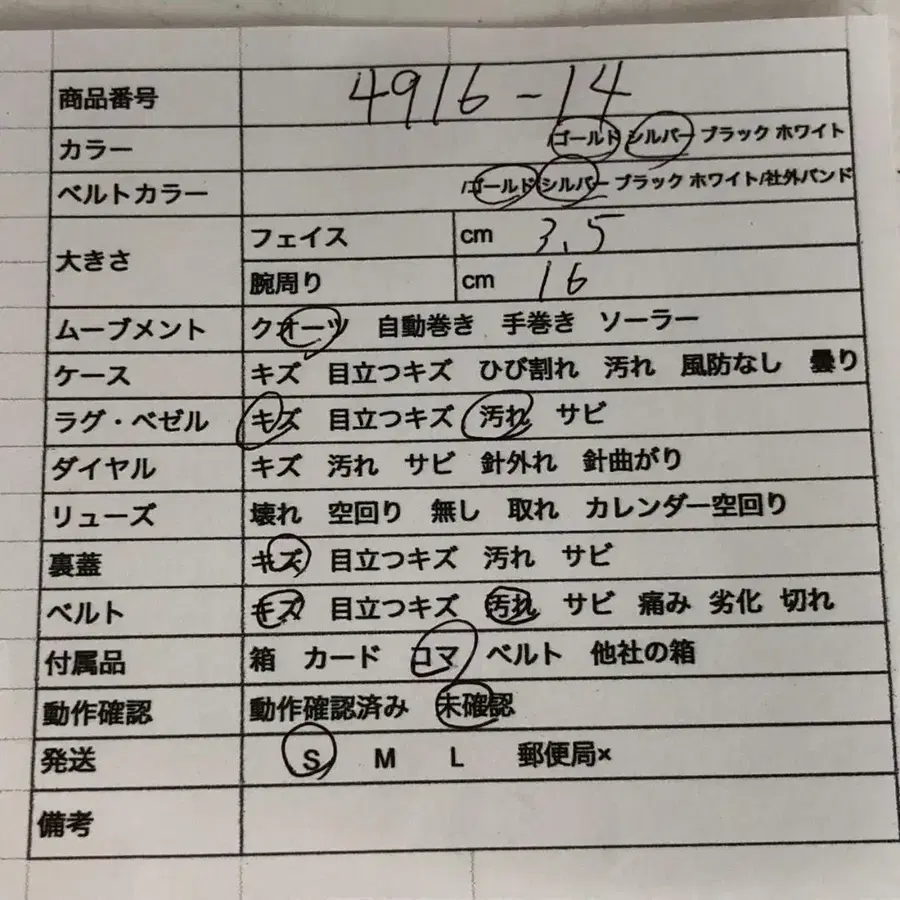 商品番号 4916-14
カラー /ゴールド シルバー ブラック ホワイト
ベルトカラー /ゴールド シルバー ブラック ホワイト/社外バンド
大きさ フェイス cm 3.5
腕周り cm 16
ムーブメント クオーツ 自動巻き 手巻き ソーラー
ケース キズ 目立つキズ ひび割れ 汚れ 風防なし 曇り
ラグ・ベゼル キズ 目立つキズ 汚れ サビ
ダイヤル キズ 汚れ サビ 針外れ 針曲がり
リューズ 壊れ 空回り 無し 取れ カレンダー空回り
裏蓋 キズ 目立つキズ 汚れ サビ
ベルト キズ 目立つキズ 汚れ サビ 痛み 劣化 切れ
付属品 箱 カード コマ ベルト 他社の箱
動作確認 動作確認済み 未確認
発送 S M L 郵便局×
備考